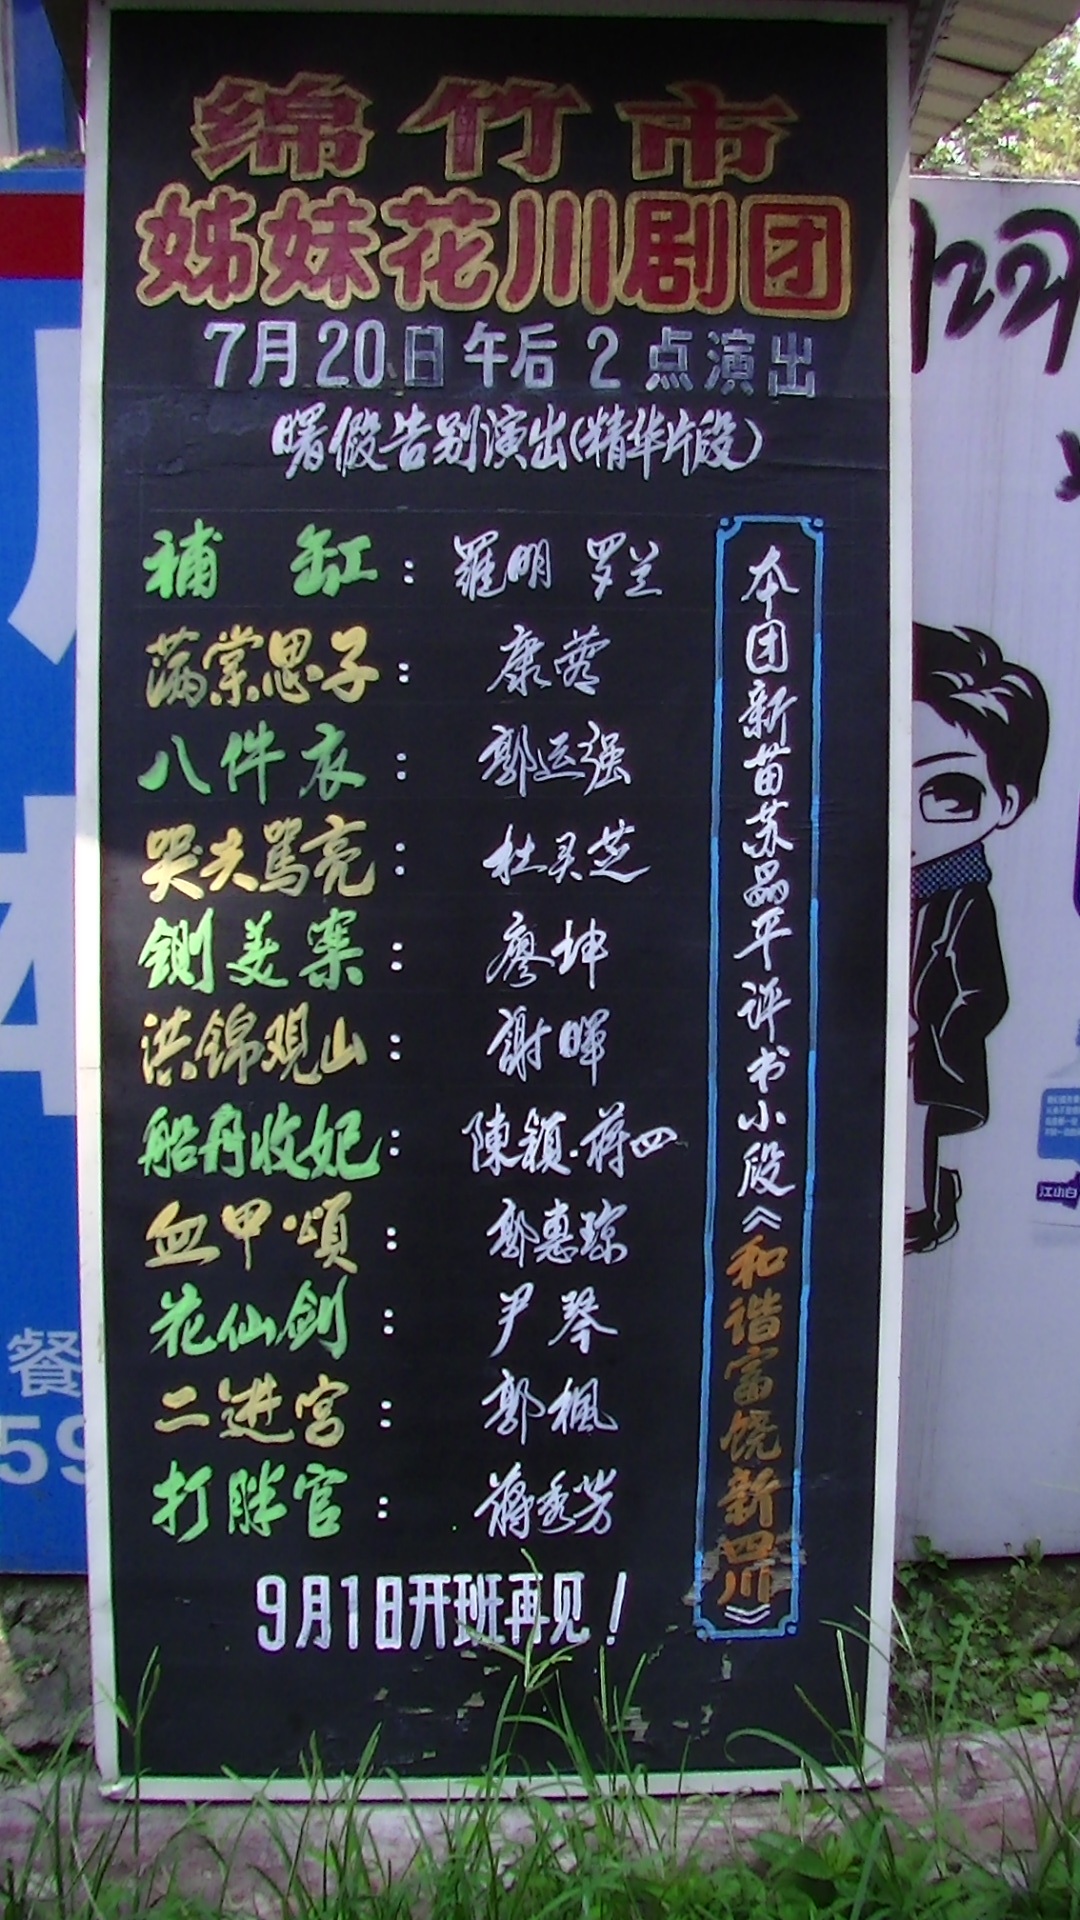 绵竹市
姊妹花川剧团
7月20日午后2点演出
暑假告别演出(精华片段)
補 缸：羅明 罗兰
满棠思子：康蓉
八件衣：郭运强
哭夫骂亮：杜灵芝
铡美案：廖坤
洪锦观山：謝暉
船舟收妃：陳颖·蒋四
血甲·頌：郭惠琼
花仙剑：尹琴
二进宫：郭楓
打胖官：蒋秀芳
9月1日开班再见！
本团新苗苏品平评书小段《和谐富饶新四川》
餐
59
江小白